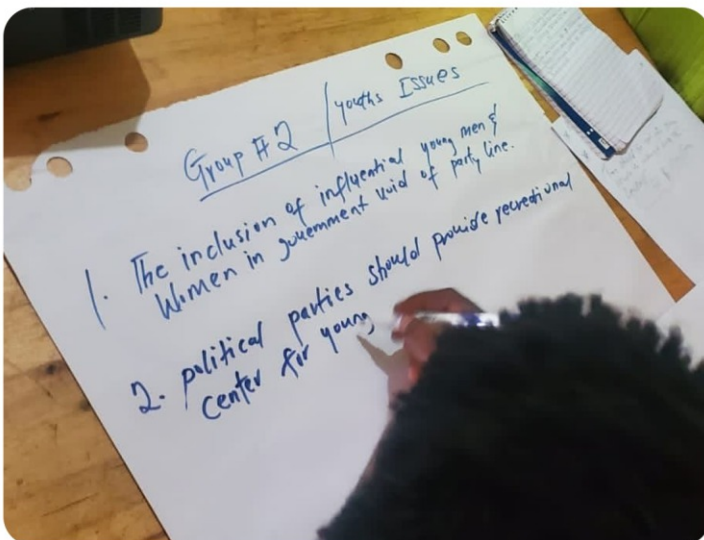 Group #2 / youths Issues
1. The inclusion of influential young men &
Women in government void of party line.
2. political parties should provide recreational
center for young